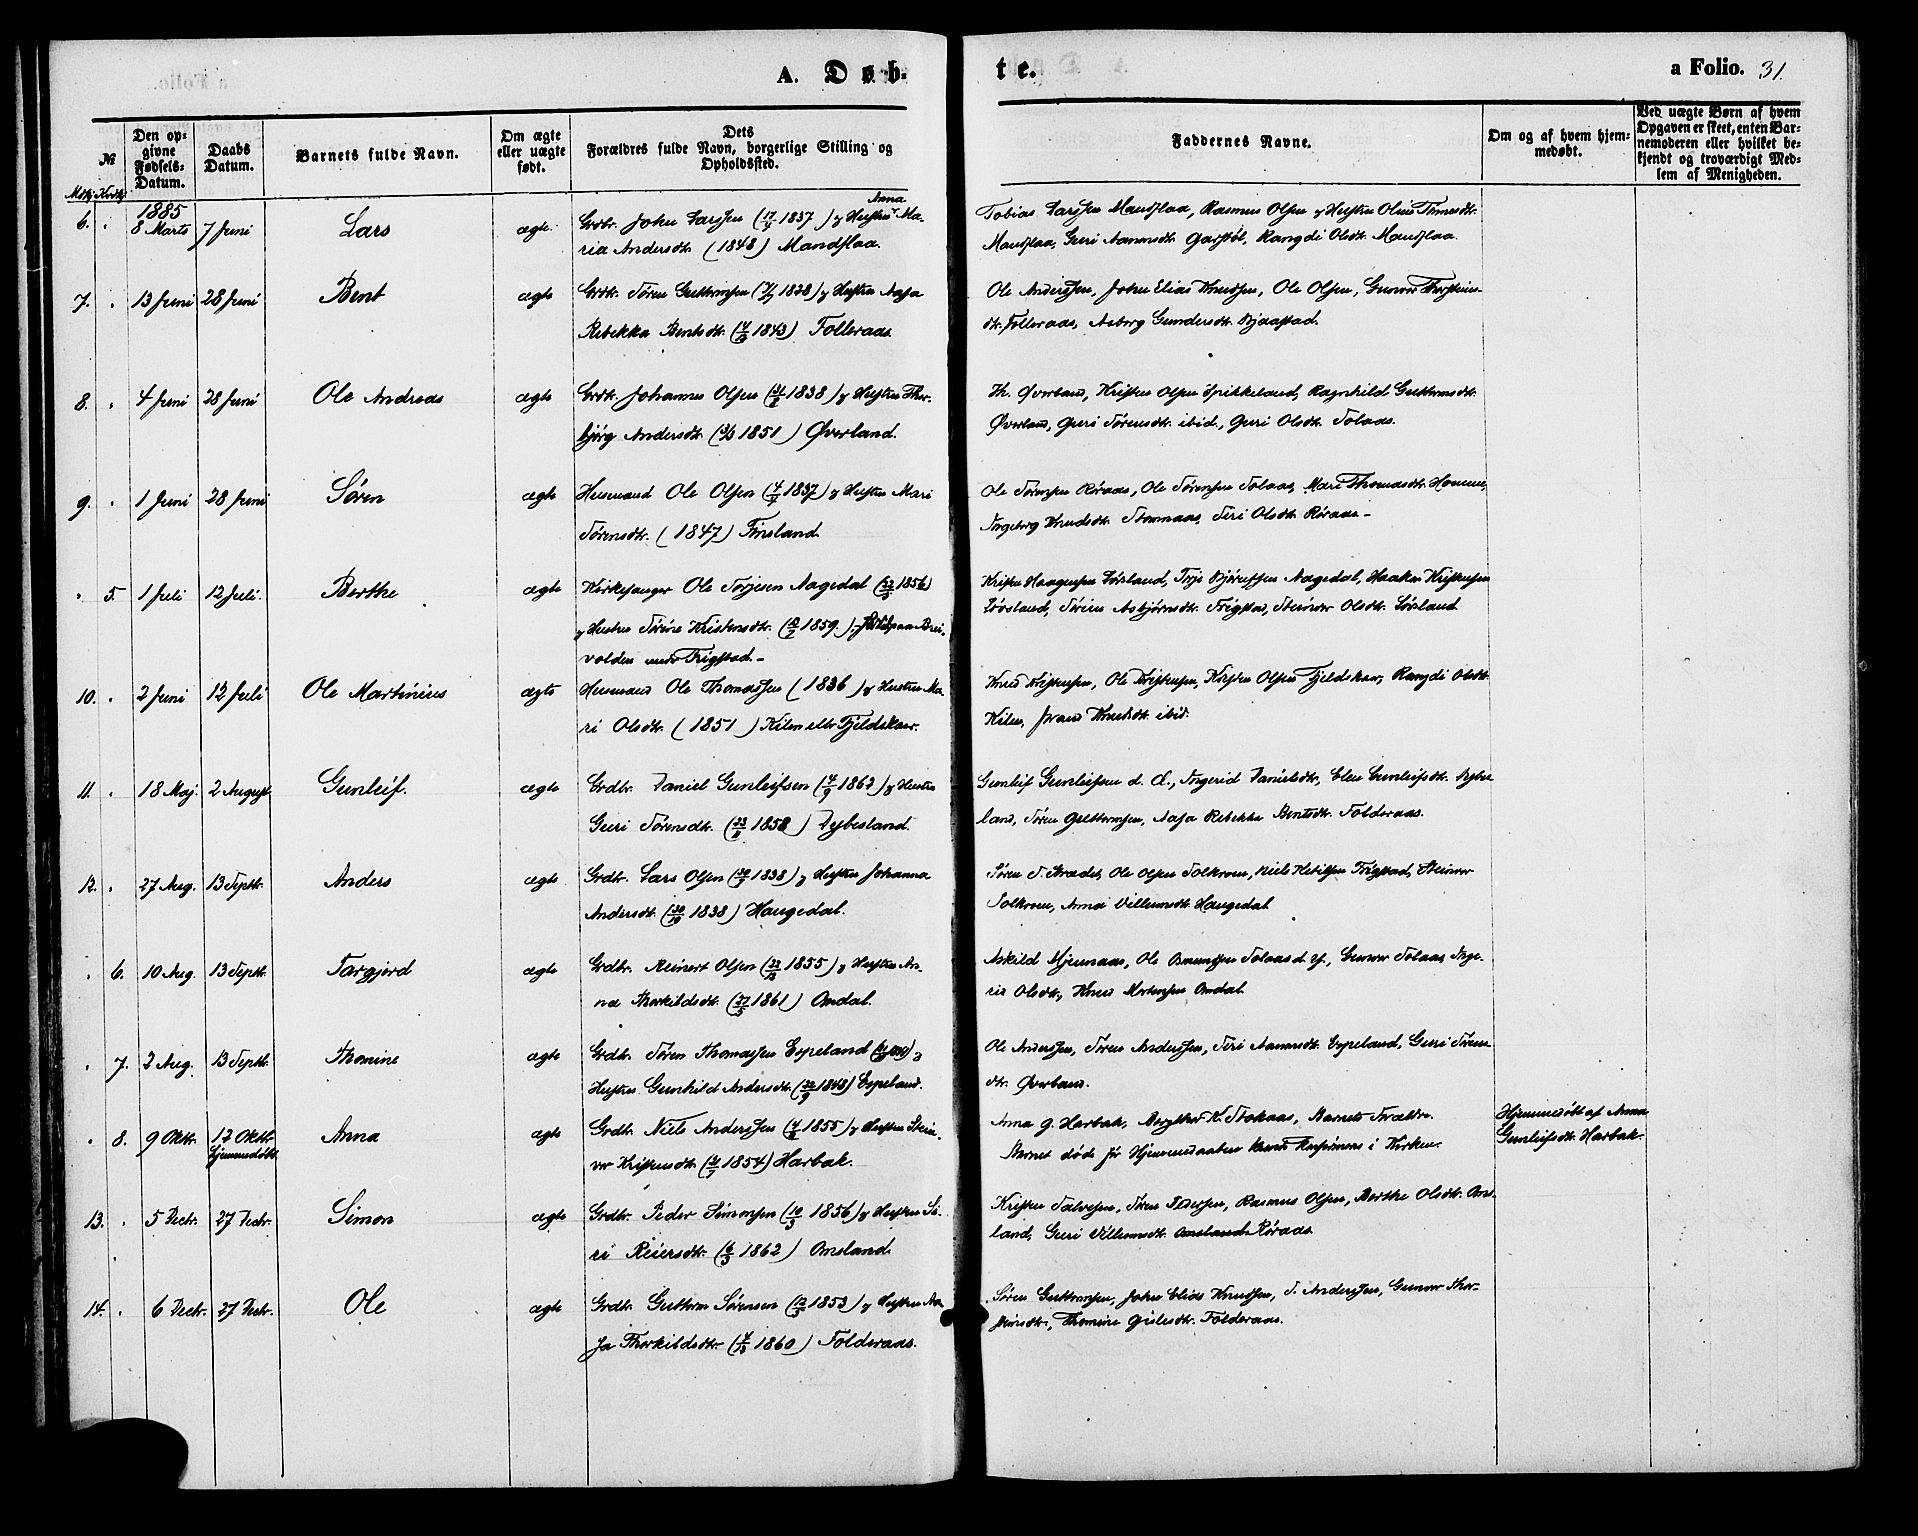 A. Døb-
te.
a Folio. 31.
№
Mdkj. Kvdkj.
Den op-
givne
Fødsels-
Datum.
Daabs
Datum.
Barnets fulde Navn.
Om ægte
eller uægte
født.
Dets
Forældres fulde Navn, borgerlige Stilling og
Opholdssted.
Faddernes Navne.
Om og af hvem hjem-
medøbt.
Ved uægte Børn af hvem
Opgaven er skeet, enten Bar-
nemoderen eller hvilket be-
kjendt og troværdigt Med-
lem af Menigheden.
1885
6. 8 Marts 7 Juni Lars ægte Grdbr. John Larssen 1837) og Hustru Anna Ma-
ria Andersdt. (1848) Mandflaa.
Tobias Larssen Mandflaa, Rasmus Olsen og Hustru
Mandflaa, Guri Aanensdt. Rangdi Olsdt. Mandflaa.
7. 13 Juni 28 Juni Bent ægte Grdbr. Søren Guttormsen 1838) og Hustru Aasa
Rebekka Bentsdt. 1843) Folleraas.
Ole Anderssen, John Elias Knudsen, Ole Olsen, Gunvor Thorsteins-
dt. Folleraas, Asborg Gundersdt. Bjaastad.
8. 4 Juni 28 Juni Ole Andreas ægte Grdbr. Johannes Olsen 1838) og Hustru Thor-
bjørg Andersdt. 1851) Øverland.
Th. Øverland, Kristen Olsen Spikkeland, Ragnhild Guttormsdt.
Øverland, Guri Sørensdt. ibid., Guri Olsdt. Solaas.
9. 1 Juni 28 Juni Søren ægte Husmand Ole Olsen 1837) og Hustru Mari
Sørensdt. (1847) Finsland.
Ole Sørensen Røraas, Ole Sørensen Solaas, Mari Thomasdt. Homme,
Ingeborg Knudsdt. Siri Olsdt. Røraas.-
5. 1 Juli 12 Juli. Berthe ægte Kirkesanger Ole Torjesen Aagedal 1856)
og Hustru Sørine Kristensdt. 1859.)
volden under Frigstad.-
Kristen Haagensen Løvsland, Aagedal, Haaken Kristensen
Løvsland, Sørine Asbjørnsdt. Frigstad, Steinvor Olsdt. Løvsland
10. 2 Juni 12 Juli Ole Martinius ægte Husmand Ole Thomassen (1836) og Hustru Ma-
ri Olsdt. (1851) Kilen eller Fjeldskaar.
Knud Kristensen, Ole Kristensen, Kristen Olsen Fjeldskaar, Rangdi Olsdt.
Kilen, Knudsdt. ibid.
11. 18 Maj 2 August Gunleif. ægte Grdbr. Daniel Gunleifsen 1863) og Hustru
Guri Sørensdt. 1858) Dybesland.
Gunleif Gunleifsen d. Æ., Ingerid Danielsdt., Elen Gunleifsdt. Dybes-
land, Søren Guttormsen, Aasa Rebekka Bentsdt. Folderaas.
12. 27 Aug. 13 Septbr. Anders ægte Grdbr. Lars Olsen 1838) og Hustru Johanna
Andersdt. 1838) Haugedal.
Søren Ole Olsen Solkroen, Niels Ketilsen Frigstad, Steinvor
Solkroen, Anna Villumsdt. Haugedal
6. 10 Aug. 13 Septbr. Torgjerd ægte Grdbr. Reinert Olsen 1855) og Hustru An-
na Thorkildsdt. 1861) Omdal.
Askild Mjennaas, Ole Osmundsen Solaas d. y., Gunvor Solaas, Inge-
rid Olsdt., Knud Mortensen Omdal.
7. 2 Aug. 13 Septbr. Thomine ægte Grdbr. Søren Thomassen Espeland og
Hustru Gunhild Andersdt. 1848) Espeland.
Ole Anderssen, Søren Anderssen, Siri Aanensdt. Espeland, Guri Sørens-
dt. Øverland.
8. 9 Oktr. 12 Oktr. hjemmedøbt Anna ægte Grdbr. Niels Anderssen 1855) og Hustru Stein-
vor Kristensdt. 1854) Harbak.
Anna G. Harbak, Stokaas, Barnets Forældre.
Barnet døde før Hjemmedaaben i Kirken.
Hjemmedøbt af Anna
Gunleifsdt. Harbak.
13. 5 Decbr. 27 Decbr. Simon ægte Grdbr. Peder Simonsen 1856) og Hustru Si-
ri Reiersdt. 1862) Omsland.
Kristen Salvesen, Søren Pedersen, Rasmus Olsen, Berthe Olsdt. Oms-
land, Guri Villumsdt. Omsland Røraas
14. 6 Decbr. 27 Decbr. Ole ægte Grdbr. Guttorm Sørensen 1853) og Hustru Aa-
sa Thorkildsdt. 1860) Folderaas.
Søren Guttormsen, John Elias Knudsen, S. Anderssen, Gunvor Thor-
steinsdt., Thomine Gislesdt. Folderaas.